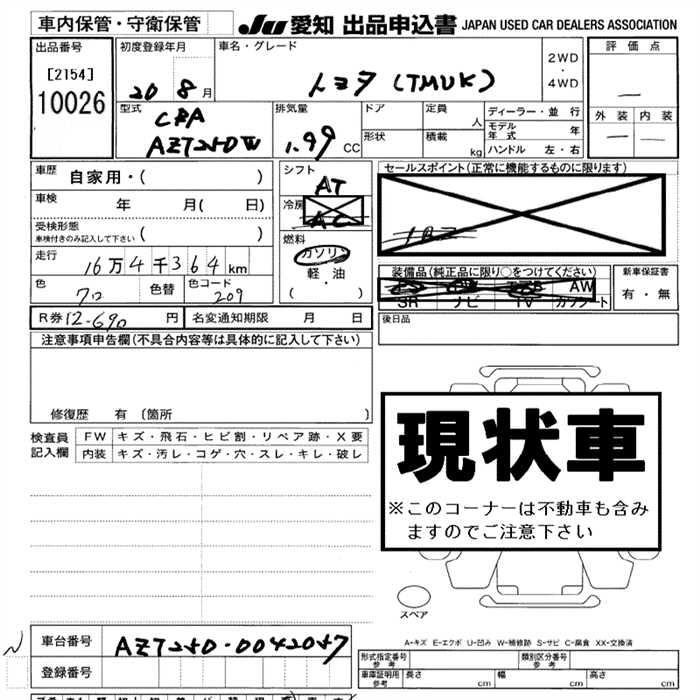 車内保管・守衛保管
JU 愛知 出品申込書 JAPAN USED CAR DEALERS ASSOCIATION
出品番号
[2154]
10026
初度登録年月
20 8月
車名・グレード
トヨタ (TMUK)
2WD
・
4WD
評価点
—
外装 内装
— —
型式
CBA
AZT250W
排気量
1.99 CC
ドア
形状
定員
人
積載
kg
ディーラー・並行
モデル年式 年
ハンドル 左・右
車歴 自家用・( )
車検 年 月( 日)
受検形態
車検付きのみ記入して下さい ( )
走行
16万4千364km
色 色替 色コード
クロ 209
R券 12-690 円 名変通知期限 月 日
シフト
AT
冷房
AC
燃料
ガソリン
軽・油
( )
セールスポイント(正常に機能するものに限ります)
装備品(純正品に限り○をつけてください)
AW
SR ナビ TV カワシート
新車保証書
有・無
後日品
注意事項申告欄(不具合内容等は具体的に記入して下さい)
修復歴 有〔箇所 〕
検査員
記入欄
FW キズ・飛石・ヒビ割・リペア跡・X要
内装 キズ・汚レ・コゲ・穴・スレ・キレ・破レ
現状車
※このコーナーは不動車も含み
ますのでご注意下さい
スペア
A-キズ E-エクボ U-凹み W-補修跡 S-サビ C-腐食 XX-交換済
車台番号 AZT250-0042047
登録番号
形式指定番号
参考
類別区分番号
参考
車庫証明用
参考
長さ cm 幅 cm 高さ cm